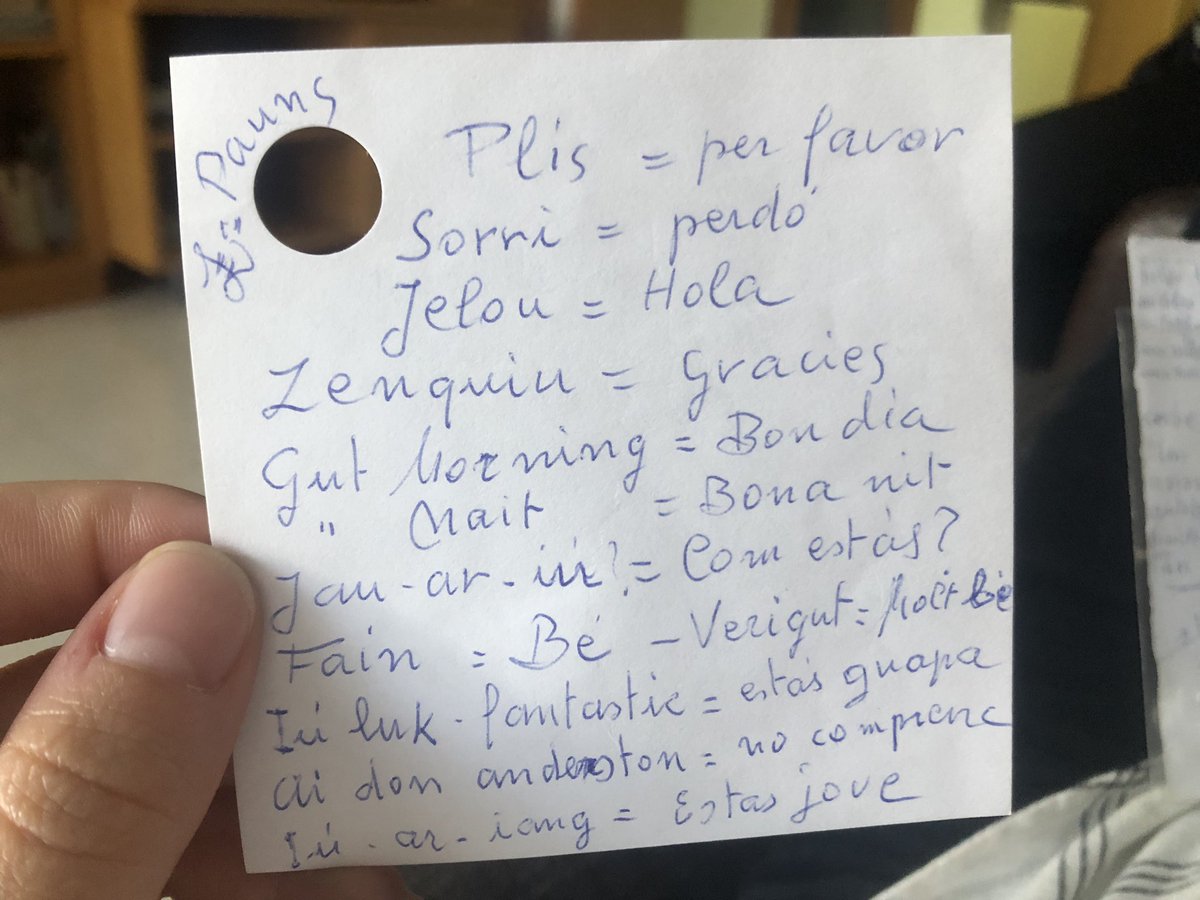 £ = Pauns
Plis = per favor
Sorri = perdó
Jelou = Hola
Zenquiu = Gracies
Gut Morning = Bon dia
" Nait = Bona nit
Jau-ar-iú? = Com estás?
Fain = Bé - Verigut = Molt bé
Iú luk - fantastic = estás guapa
Ai don anderston = no comprenc
Iú - ar - iang = Estas jove